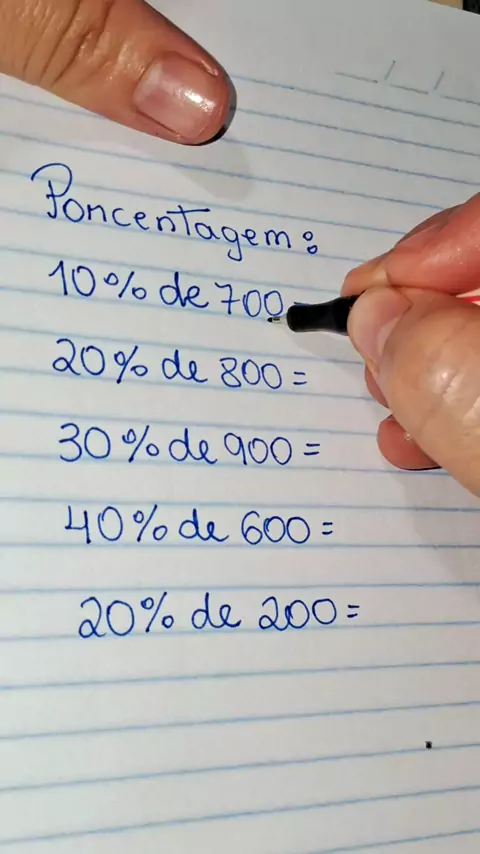 Porcentagem:
10% de 700
20% de 800 =
30% de 900 =
40% de 600 =
20% de 200 =